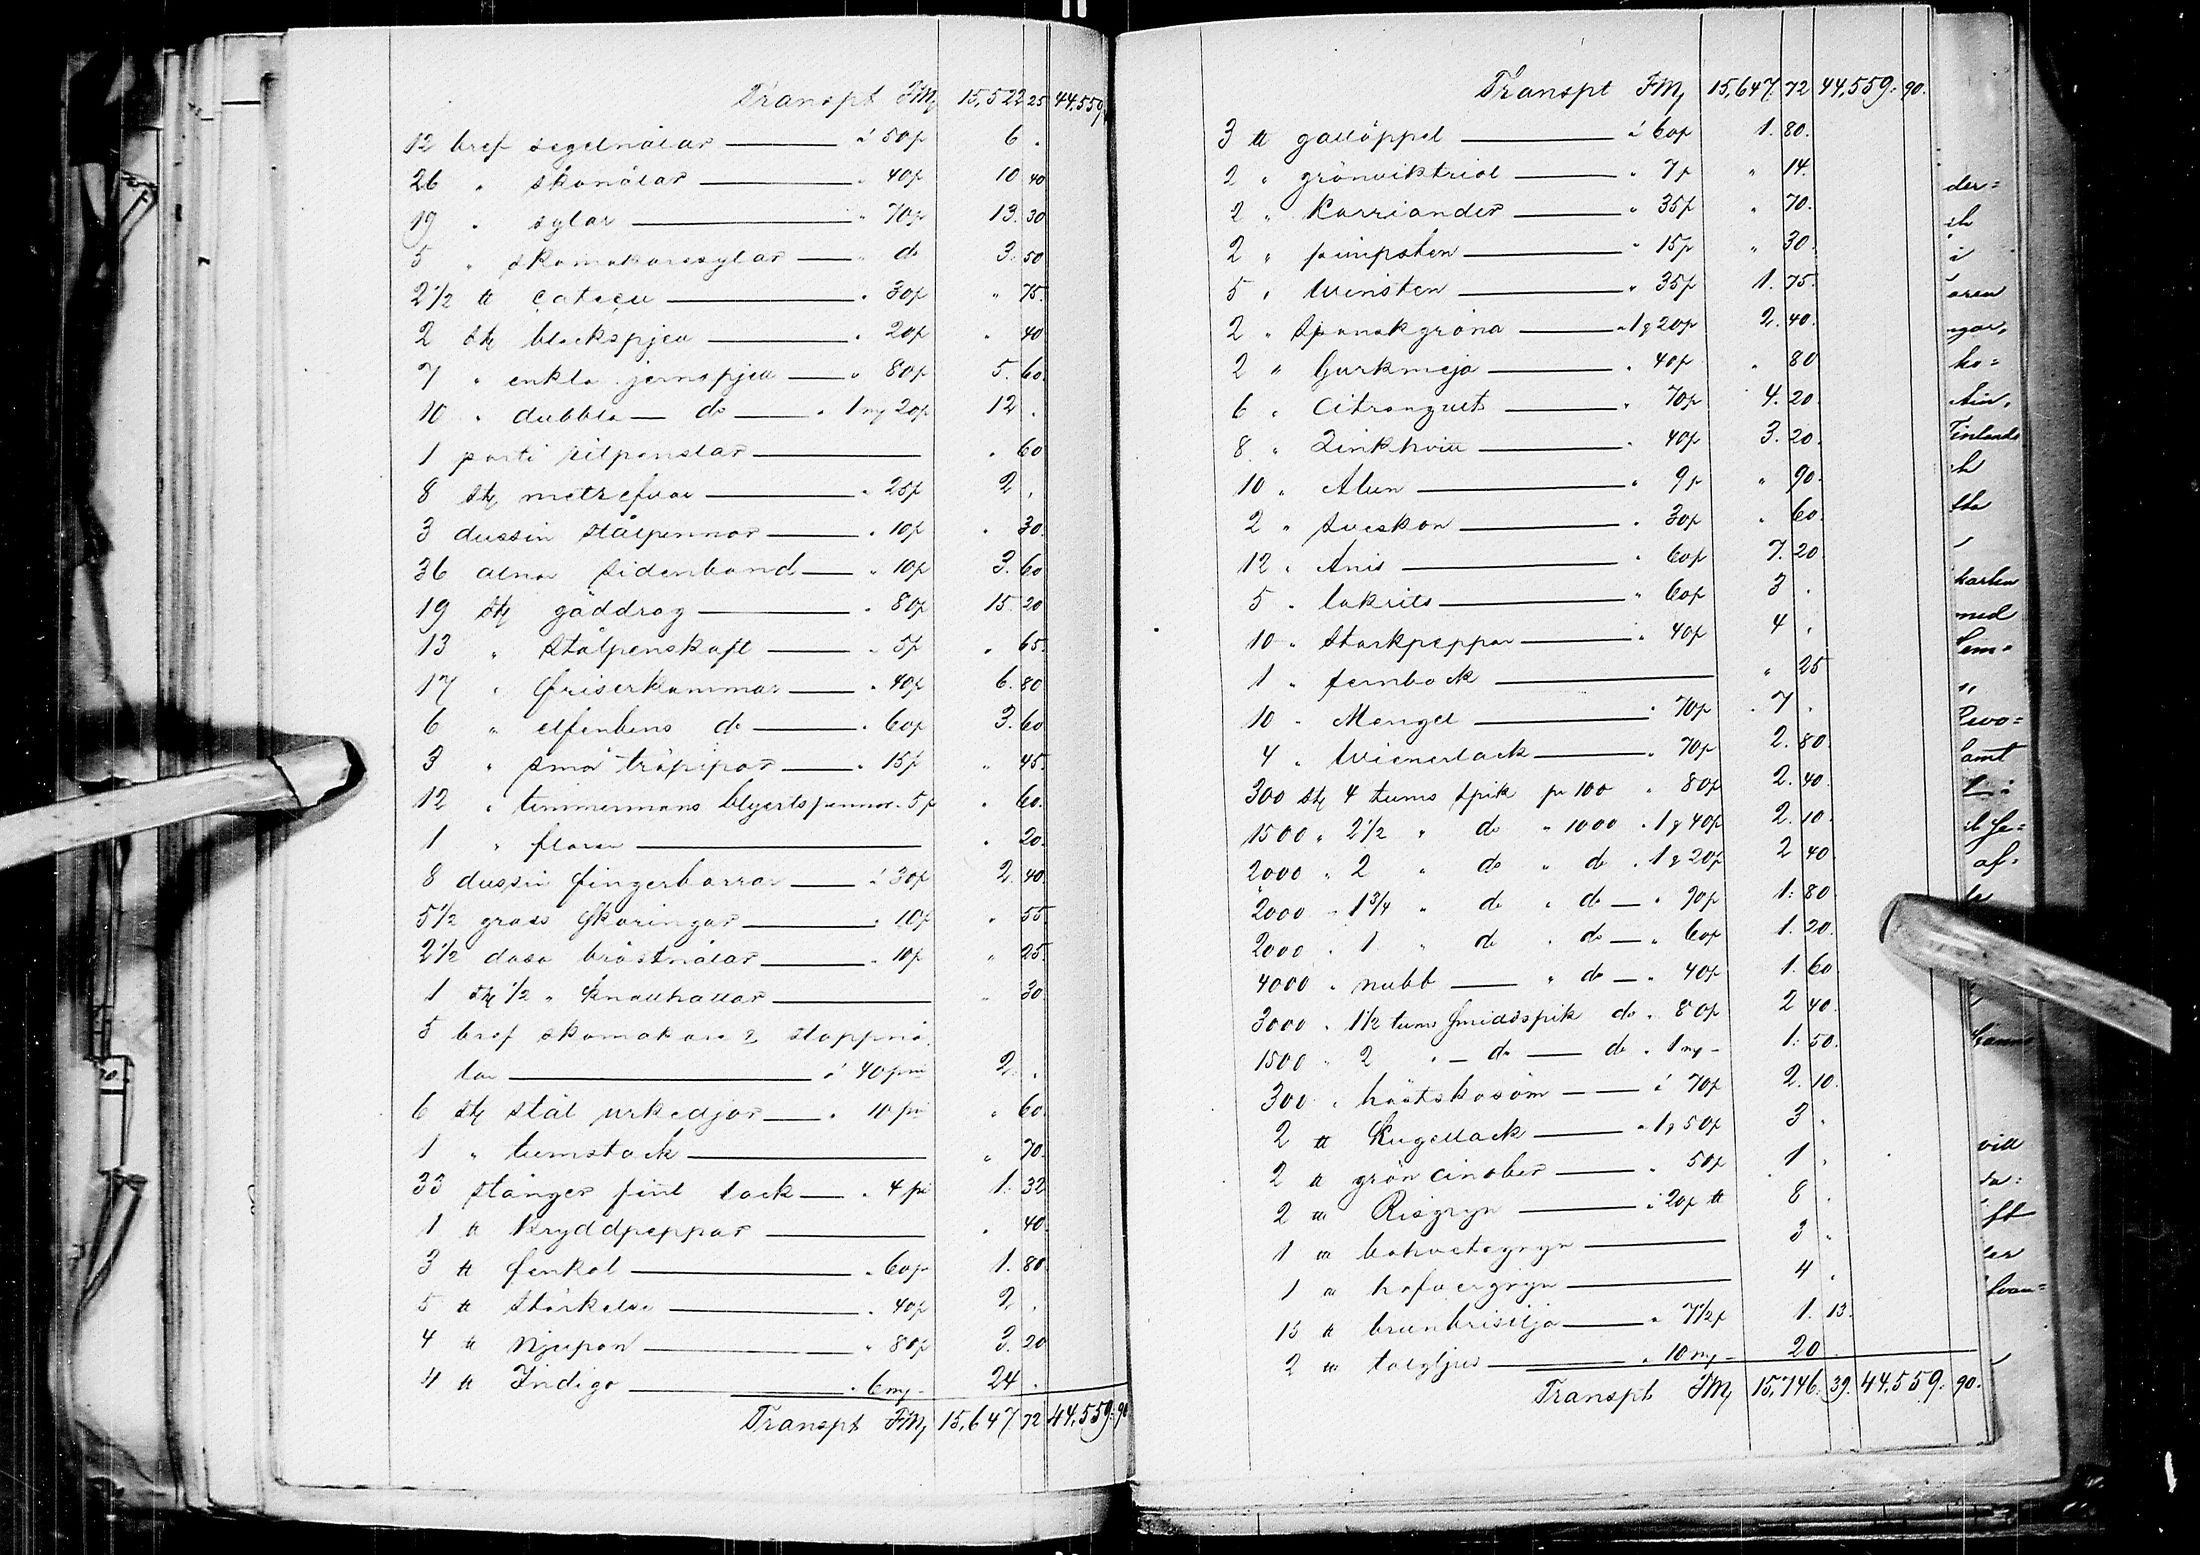 Transpt FM, 15,522 25 44,559
12 bref segelnålar á 50p 6 .
26 " skonålar " 40p 10 40
19 " sylar " 70p 13. 30
5 " skomakaresylar " do 3. 50
2 1/2 ℔ catecu " 30p " 75.
2 st bleckspjell " 20p " 40
7 " enkla jernspjell " 80p 5. 60.
10 " dubbla do " 1 mk 20p 12 .
1 parti ritpenslar " 60
8 st metrefvar " 25p 2 .
3 dussin stålpennor " 10p " 30.
36 alnar sidenband " 10p 3. 60
19 st gäddrag " 80p 15. 20
13 " stålpenskaft " 5p " 65.
17 " friserkammar " 40p 6. 80
6 " elfenbens do " 60p 3. 60
3 " små träpipor " 15p " 45.
12 " timmermans blyertspennor " 5p " 60.
1 " " 20.
8 dussin fingerborrar á 30p 2. 40.
5 1/2 gross skoringar " 10p " 55
2 1/2 dosa bröstnålar " 10p " 25.
1 st 1/2 " knallhattar " 30
5 bref skomakare & stoppnå-
lar á 40 pni 2. .
6 st stål urkedjor " 10 pni " 60
1 " tumstock " 70.
33 stänger fint lack " 4 pni 1. 32
1 ℔ Kryddpeppar " 40
3 ℔ fenkol " 60p 1. 80
5 ℔ stärkelse " 40p 2 .
4 ℔ Njupon " 80p 3. 20
4 ℔ Indigo " 6 mk 24 .
Transpt FM, 15,647 72 44,559. 90
Transpt FM, 15,647. 72 44,559. 90.
3 ℔ galläppel á 60p 1. 80.
2 " grönviktriol " 7p " 14.
2 " Karriander " 35p " 70.
2 " pimpsten " 15p " 30.
5 " Winsten " 35p 1. 75.
2 " Spanskgröna " 1 " 20p 2. 40.
2 " Gurkmeja " 40p " 80
6 " Citrongult " 70p 4. 20.
8 " Zinkhvitt " 40p 3. 20.
10 " Alun " 9p " 90.
2 " Sveskon " 30p " 60.
12 " Anis " 60p 7. 20.
5 " lakrits " 60p 3 .
10 " Starkpeppar " 40p 4 .
1 " fernbock " 25
10 " Mengel " 70p 7 .
4 " Wienerlack " 70p 2. 80.
300 st 4 tums spik pr 100 " 80p 2. 40.
1500 " 2 1/2 " do " 1000 " 1 " 40p 2. 10.
2000 " 2 " do " do " 1 " 20p 2 40.
2000 " 1 3/4 " do " do " 90p 1. 80
2000 " 1 " do " do " 60p 1. 20.
4000 " nubb " do " 40p 1. 60
3000 " 1 1/2 tums smidsspik do " 80p 2 40.
1500 " 2 " do do " 1 mk 1. 50.
300 " hästskosöm á 70p 2. 10.
2 ℔ Kugellack " 1 " 50p 3 .
2 ℔ grön cinober " 50p 1 .
2 Risgryn á 20p ℔ 8 .
1 bohvetegryn 3 .
1 hafvergryn 4 .
15 ℔ brunbrisilja " 7 1/2p 1. 13.
2 talgljus " 10 mk 20 .
Transpt FM, 15,746. 39. 44,559. 90.
der=
i
aren
ho=
Finlands
med
samt
af=
vill